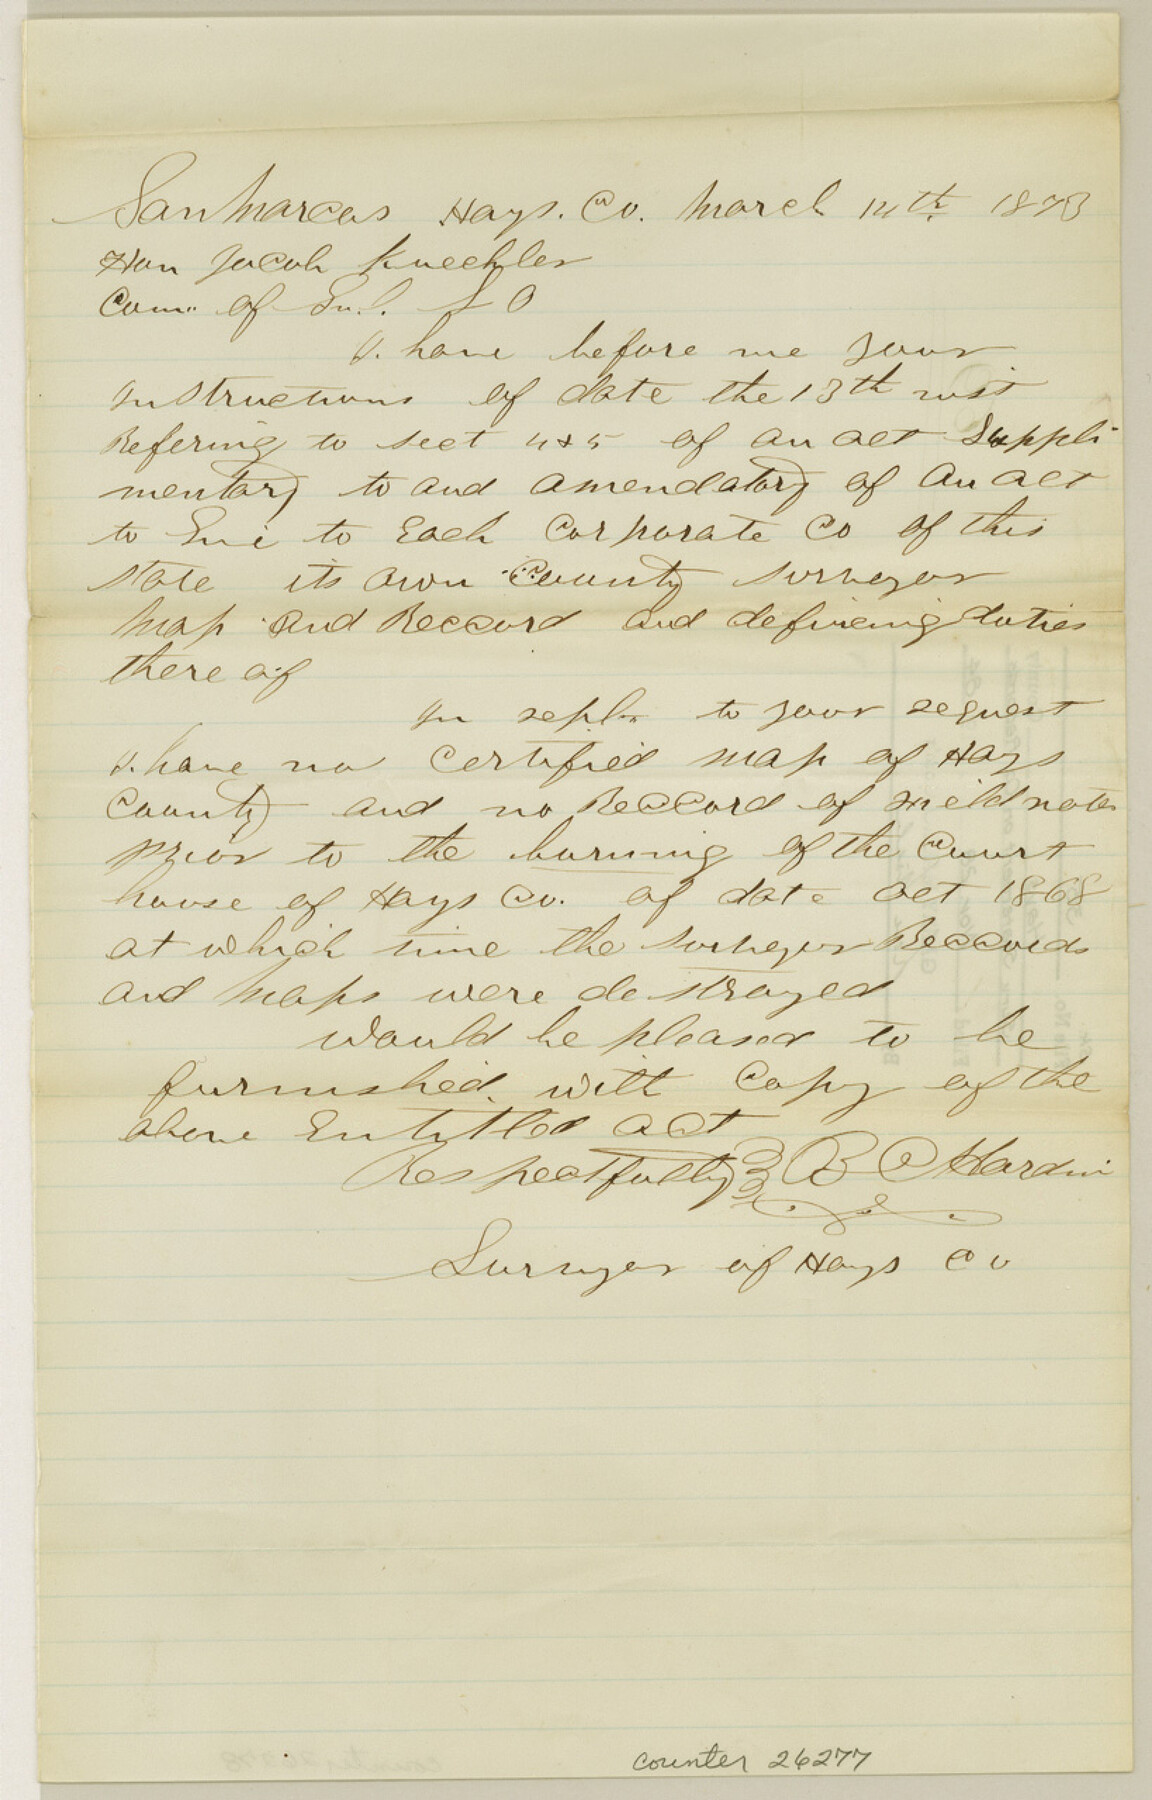 San Marcos Hays. Co. March 14th 1873
Hon Jacob Kuechler
Com. of Gnl. L O
I. have before me your
instructions of date the 13th inst
Refering to sect 4 & 5 of an act Suppli
mentary to and amendatory of an act
to Give to Each Corporate Co of this
state its own County surveyor
Map and Reccord and defineing duties
there of
In reply to your request
I. have no Certified map of Hays
County and no Reccord of Field notes
prior to the burning of the Court
house of Hays Co. of date Oct 1868
at which time the surveyor Reccords
and Maps were destroyed
Would be pleased to be
furnished. with Copy of the
above Entitled act
Respectfully B C Hardin
Surveyor of Hays Co
counter 26277